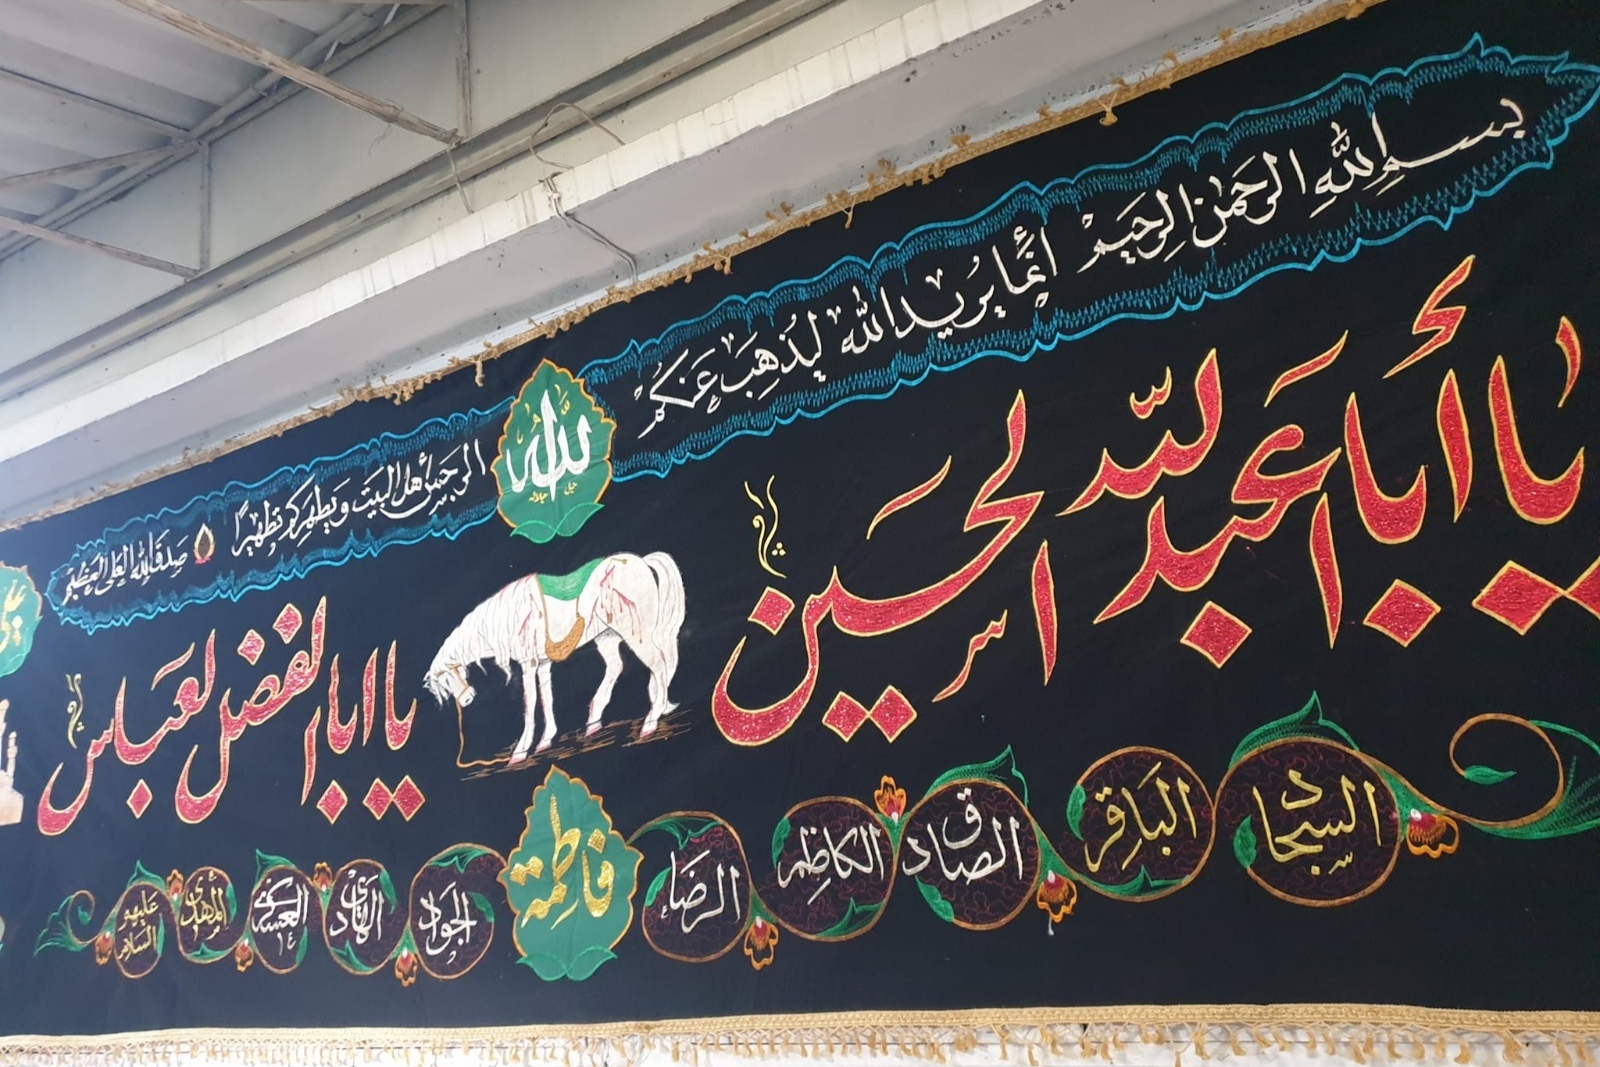 بسم الله الرحمن الرحيم إنما يريد الله ليذهب عنكم
الله
جل جلاله
الرجس أهل البيت ويطهركم تطهيرًا صدق الله العلي العظيم
يا أبا عبد الله الحسين
يا ابا الفضل العباس
السجاد
الباقر
الصادق
الكاظم
الرضا
فاطمة
الجواد
الهادي
العسكري
المهدي
عليهم السلام